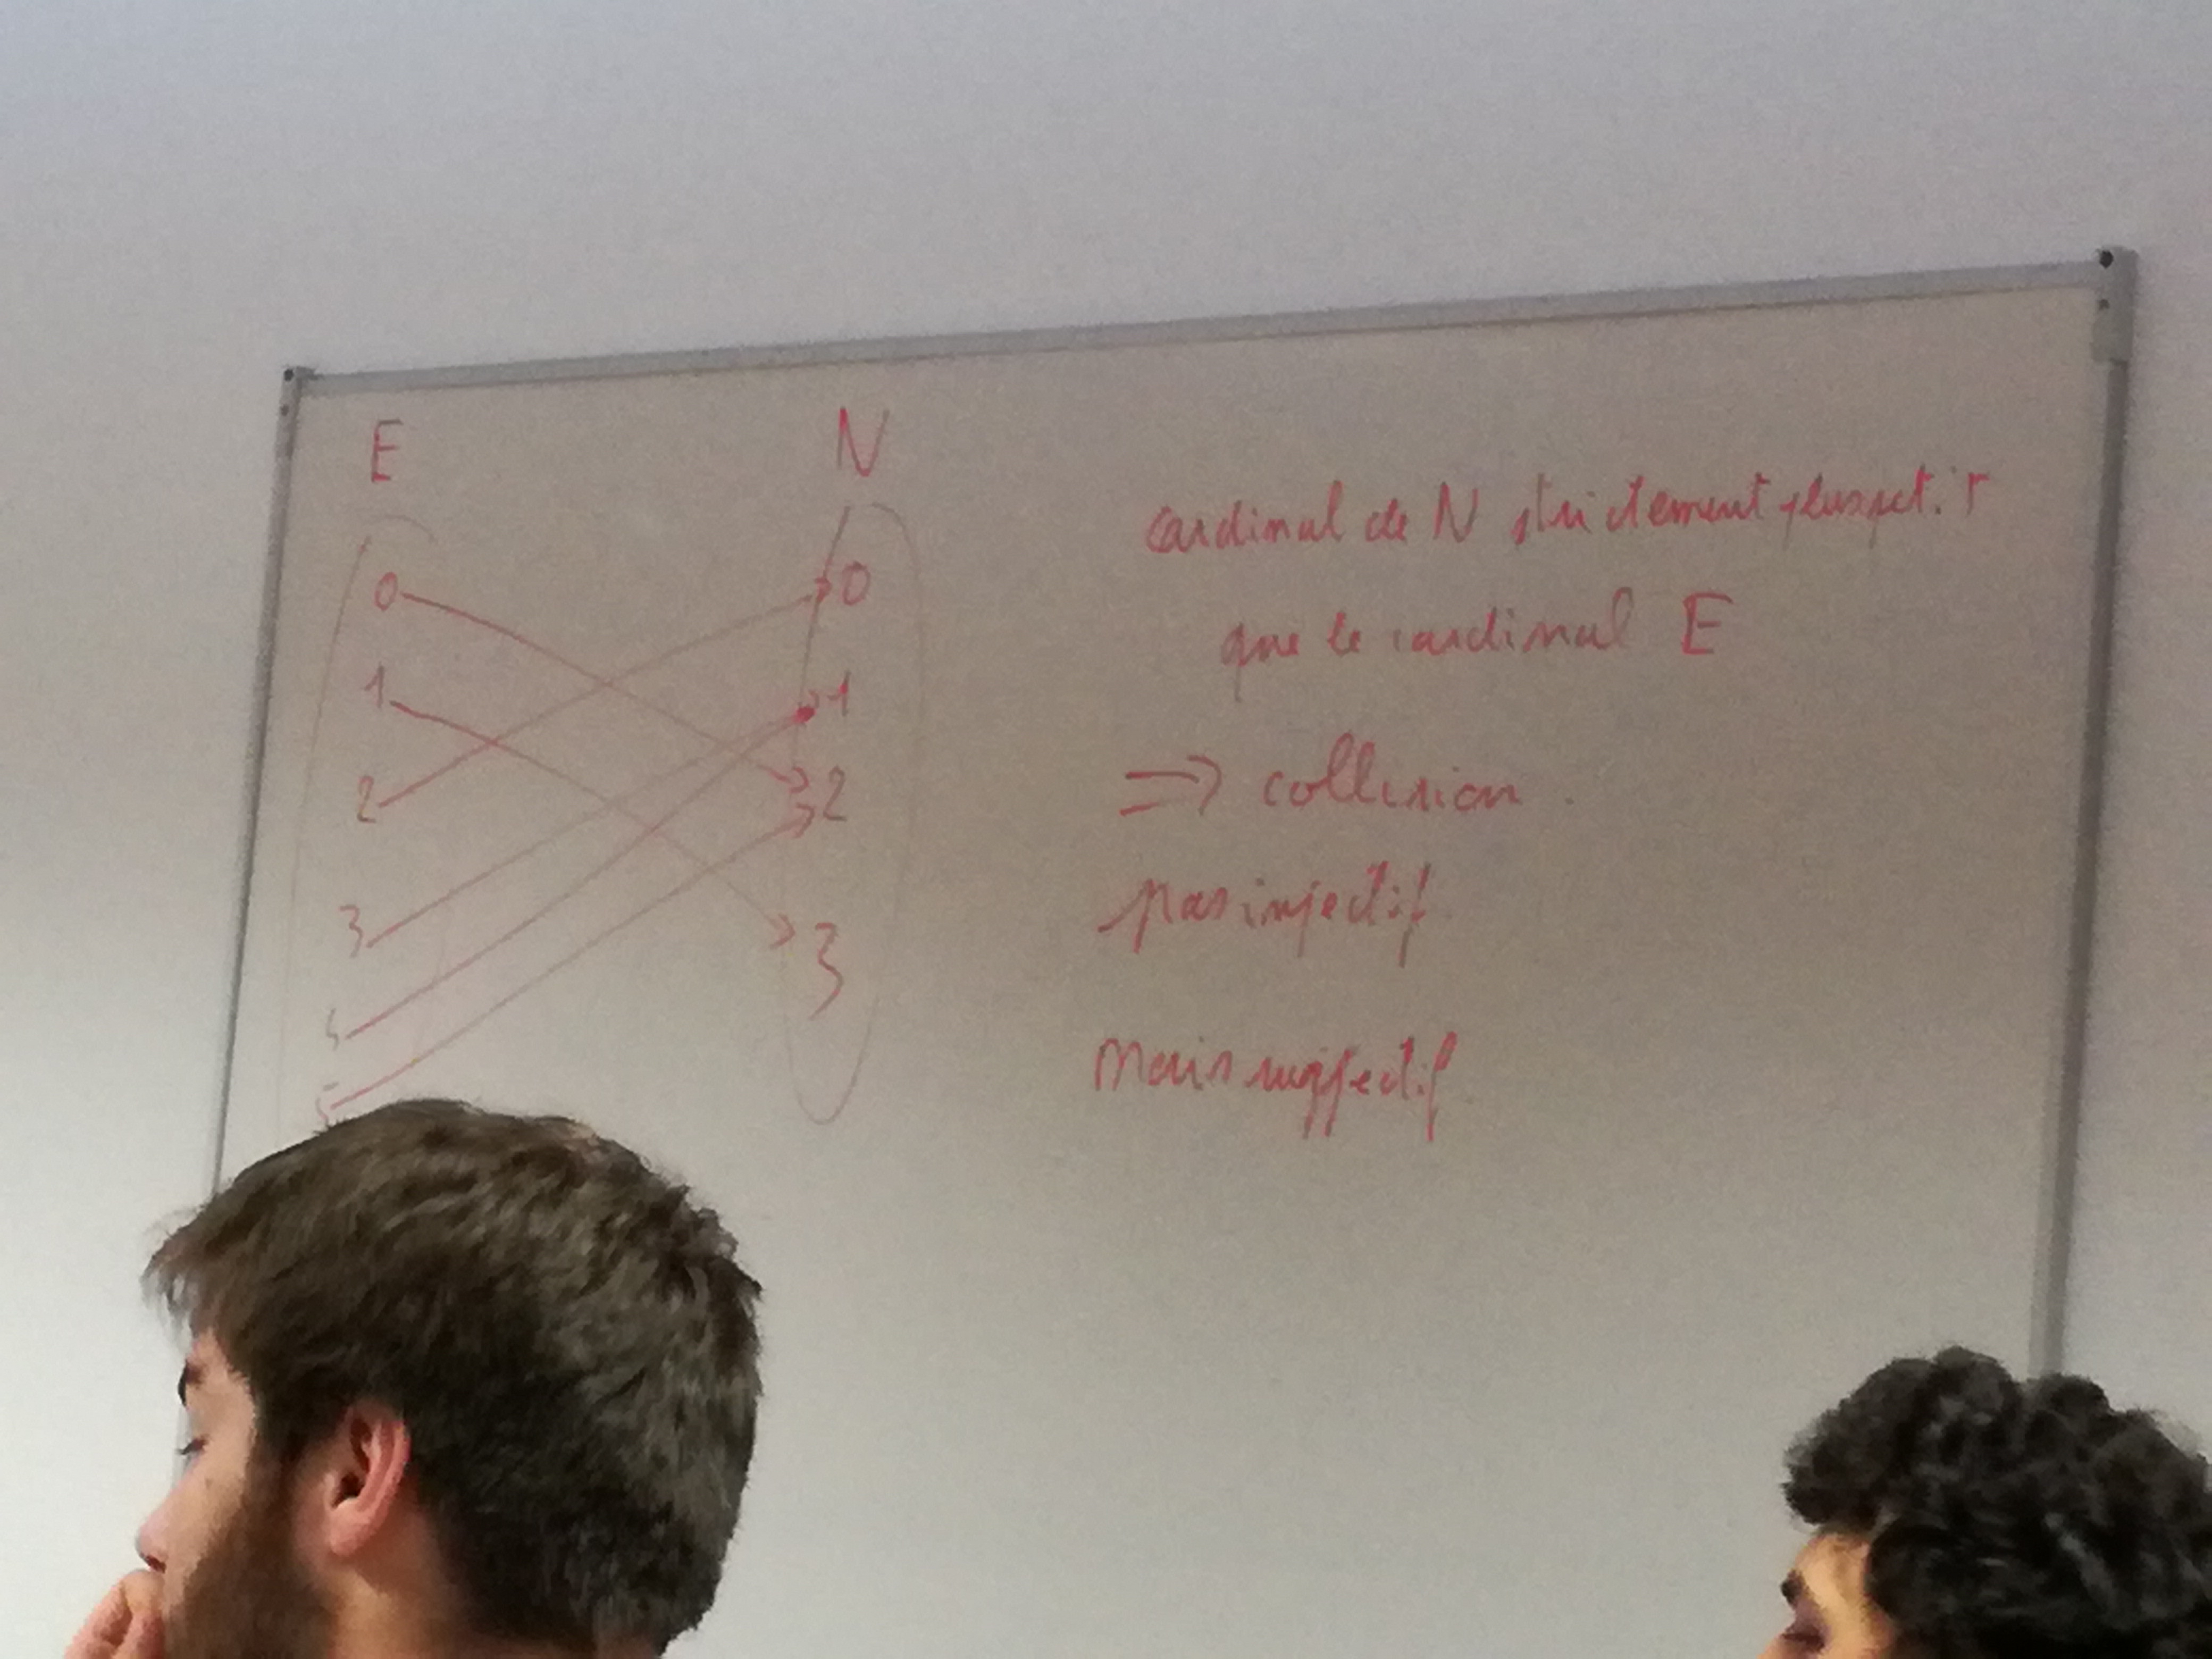 E N
0 0
1 1
2 2
3 3
4
5
cardinal de N strictement plus petit
que le cardinal E
⇒ collision.
pas injectif
mais surjectif